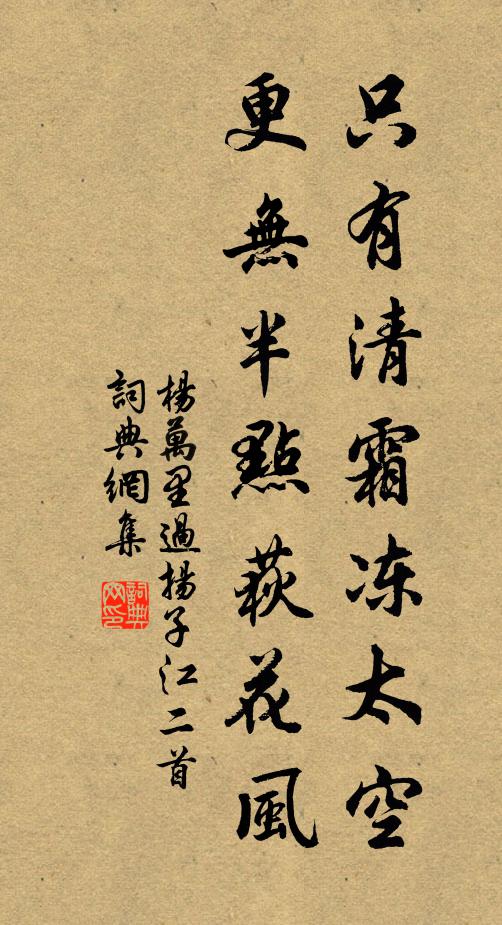 只有清霜冻太空
更無半點荻花風
楊萬里過揚子江二首
詞典網集
詞典網印